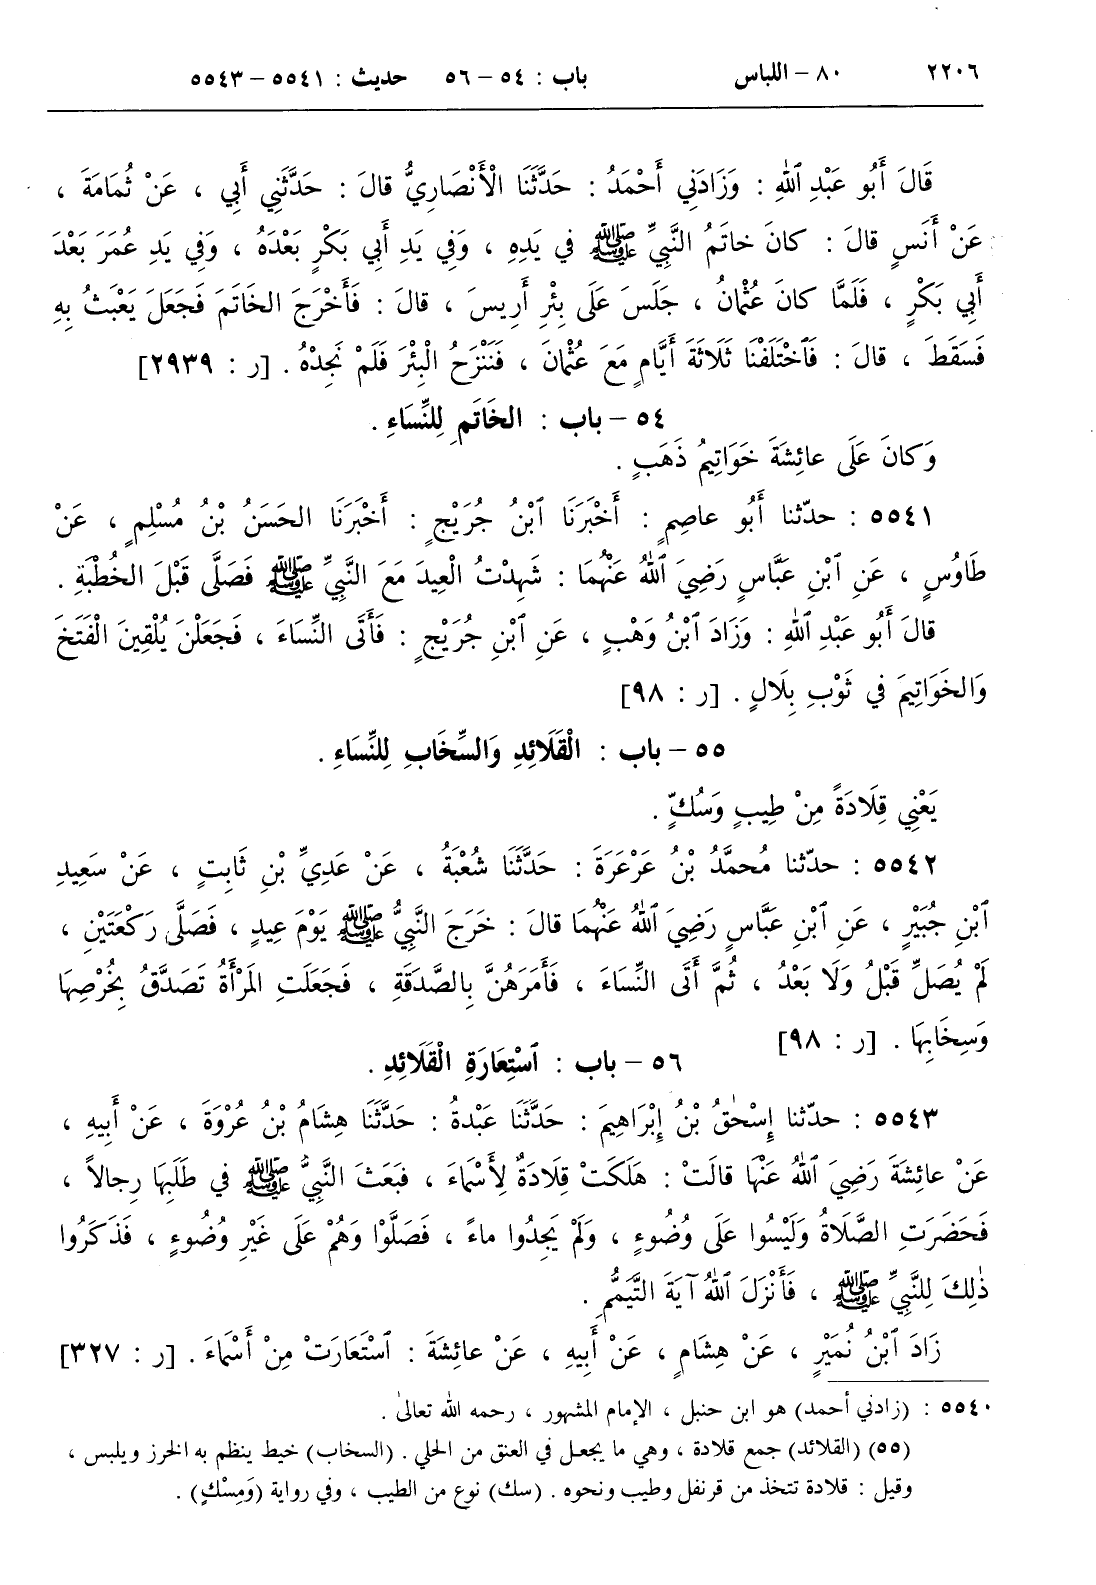 ٢٢٠٦ ٨٠ – اللباس باب : ٥٤ – ٥٦ حديث : ٥٥٤١ – ٥٥٤٣
قَالَ أَبُو عَبْدِ ٱللهِ : وَزَادَنِي أَحْمَدُ : حَدَّثَنَا الْأَنْصَارِيُّ قالَ : حَدَّثَنِي أَبِي ، عَنْ ثُمَامَةَ ،
عَنْ أَنَسٍ قالَ : كانَ خاتَمُ النَّبِيِّ ﷺ في يَدِهِ ، وَفِي يَدِ أَبِي بَكْرٍ بَعْدَهُ ، وَفِي يَدِ عُمَرَ بَعْدَ
أَبِي بَكْرٍ ، فَلَمَّا كانَ عُثْمانُ ، جَلَسَ عَلَى بِئْرِ أَرِيسَ ، قالَ : فَأَخْرَجَ الخَاتَمَ فَجَعَلَ يَعْبَثُ بِهِ
فَسَقَطَ ، قالَ : فَٱخْتَلَفْنَا ثَلَاثَةَ أَيَّامٍ مَعَ عُثْمانَ ، فَنَنْزَحُ الْبِئْرَ فَلَمْ نَجِدْهُ . [ر : ٢٩٣٩]
٥٤ – باب : الخَاتَمِ لِلنِّسَاءِ .
وَكانَ عَلَى عائِشَةَ خَوَاتِيمُ ذَهَبٍ .
٥٥٤١ : حدّثنا أَبُو عاصِمٍ : أَخْبَرَنَا ٱبْنُ جُرَيْجٍ : أَخْبَرَنَا الحَسَنُ بْنُ مُسْلِمٍ ، عَنْ
طَاوُسٍ ، عَنِ ٱبْنِ عَبَّاسٍ رَضِيَ ٱللهُ عَنْهُمَا : شَهِدْتُ الْعِيدَ مَعَ النَّبِيِّ ﷺ فَصَلَّى قَبْلَ الخُطْبَةِ .
قالَ أَبُو عَبْدِ ٱللهِ : وَزَادَ ٱبْنُ وَهْبٍ ، عَنِ ٱبْنِ جُرَيْجٍ : فَأَتَى النِّسَاءَ ، فَجَعَلْنَ يُلْقِينَ الْفَتَخَ
وَالخَوَاتِيمَ في ثَوْبِ بِلَالٍ . [ر : ٩٨]
٥٥ – باب : الْقَلَائِدِ وَالسِّخَابِ لِلنِّسَاءِ .
يَعْنِي قِلَادَةً مِنْ طِيبٍ وَسُكٍّ .
٥٥٤٢ : حدّثنا مُحمَّدُ بْنُ عَرْعَرَةَ : حَدَّثَنَا شُعْبَةُ ، عَنْ عَدِيِّ بْنِ ثَابِتٍ ، عَنْ سَعِيدِ
ٱبْنِ جُبَيْرٍ ، عَنِ ٱبْنِ عَبَّاسٍ رَضِيَ ٱللهُ عَنْهُمَا قالَ : خَرَجَ النَّبِيُّ ﷺ يَوْمَ عِيدٍ ، فَصَلَّى رَكْعَتَيْنِ ،
لَمْ يُصَلِّ قَبْلُ وَلَا بَعْدُ ، ثُمَّ أَتَى النِّسَاءَ ، فَأَمَرَهُنَّ بِالصَّدَقَةِ ، فَجَعَلَتِ المَرْأَةُ تَصَدَّقُ بِخُرْصِهَا
وَسِخَابِهَا . [ر : ٩٨]
٥٦ – باب : ٱسْتِعَارَةِ الْقَلَائِدِ .
٥٥٤٣ : حدّثنا إِسْحٰقُ بْنُ إِبْرَاهِيمَ : حَدَّثَنَا عَبْدةُ : حَدَّثَنَا هِشَامُ بْنُ عُرْوَةَ ، عَنْ أَبِيهِ ،
عَنْ عائِشَةَ رَضِيَ ٱللهُ عَنْهَا قالَتْ : هَلَكَتْ قِلَادَةٌ لِأَسْمَاءَ ، فَبَعَثَ النَّبِيُّ ﷺ في طَلَبِهَا رِجالاً ،
فَحَضَرَتِ الصَّلَاةُ وَلَيْسُوا عَلَى وُضُوءٍ ، وَلَمْ يَجِدُوا ماءً ، فَصَلَّوْا وَهُمْ عَلَى غَيْرِ وُضُوءٍ ، فَذَكَرُوا
ذٰلِكَ لِلنَّبِيِّ ﷺ ، فَأَنْزَلَ ٱللهُ آيَةَ التَّيَمُّمِ .
زَادَ ٱبْنُ نُمَيْرٍ ، عَنْ هِشَامٍ ، عَنْ أَبِيهِ ، عَنْ عائِشَةَ : ٱسْتَعَارَتْ مِنْ أَسْمَاءَ . [ر : ٣٢٧]
٥٥٤٠ : (زادني أحمد) هو ابن حنبل ، الإمام المشهور ، رحمه الله تعالىٰ .
(٥٥) (القلائد) جمع قلادة ، وهي ما يجعل في العنق من الحلي . (السخاب) خيط ينظم به الخرز ويلبس ،
وقيل : قلادة تتخذ من قرنفل وطيب ونحوه . (سك) نوع من الطيب ، وفي رواية (وَمِسْكٍ) .